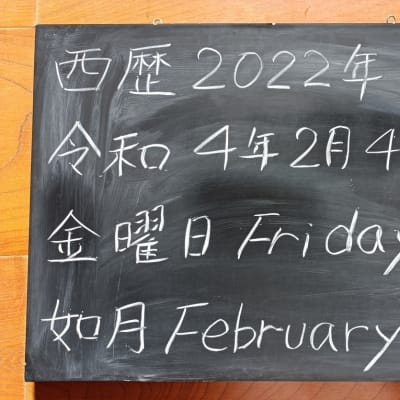 西歴2022年
令和4年2月4
金曜日 Friday
如月 February